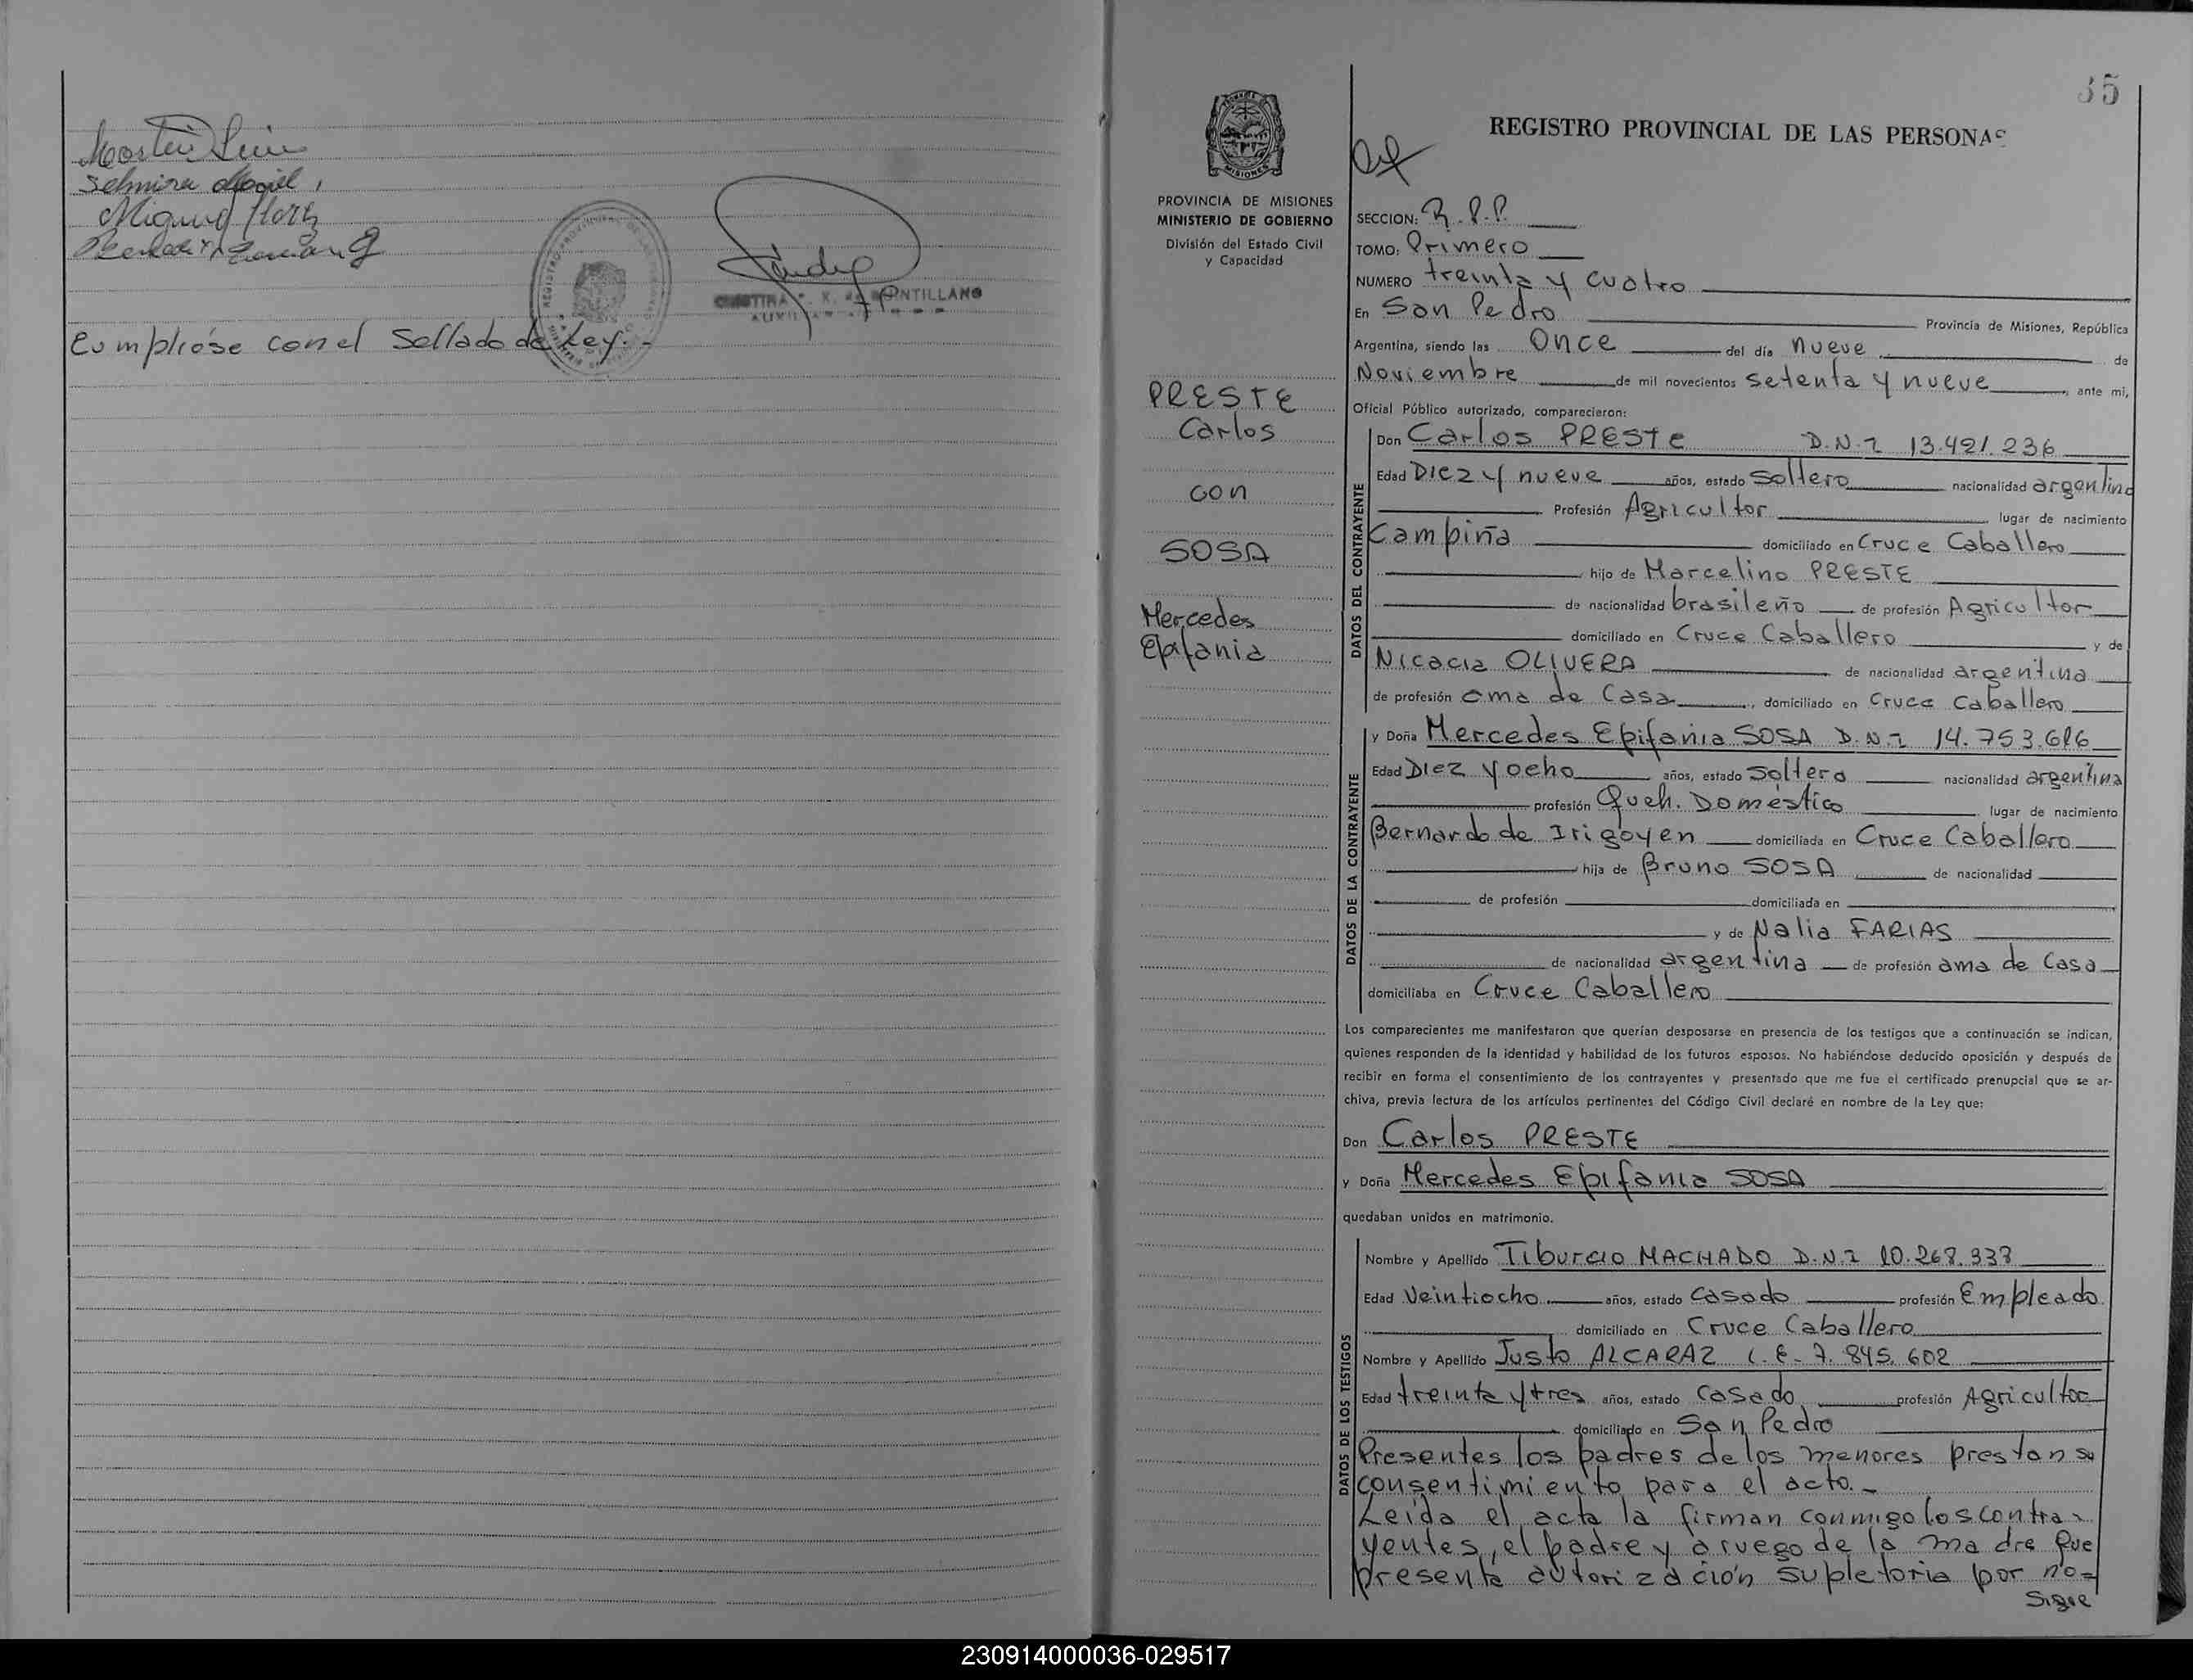 Selmira
Miguel
Cumplióse con el Sellado de Ley.-
35
REGISTRO PROVINCIAL DE LAS PERSONAS
MISIONES
PROVINCIA DE MISIONES
MINISTERIO DE GOBIERNO
División del Estado Civil
y Capacidad
PRESTE
Carlos
con
SOSA
Mercedes
Epifania
SECCION: R.P.P.
TOMO: Primero
NUMERO treinta y cuatro
En San Pedro Provincia de Misiones, República
Argentina, siendo las Once del día nueve de
Noviembre de mil novecientos setenta y nueve, ante mi,
Oficial Público autorizado, comparecieron:
DATOS DEL CONTRAYENTE
Don Carlos PRESTE D.N.I 13.421.236
Edad Diez y nueve años, estado Soltero nacionalidad argentina
Profesión Agricultor lugar de nacimiento
Campiña domiciliado en Cruce Caballero
hijo de Marcelino PRESTE
de nacionalidad brasileño de profesión Agricultor
domiciliado en Cruce Caballero y de
Nicacia OLIVERA de nacionalidad argentina
de profesión ama de Casa, domiciliado en Cruce Caballero
DATOS DE LA CONTRAYENTE
y Doña Mercedes Epifania SOSA D.N.I 14.753.616
Edad Diez y ocho años, estado Soltera nacionalidad argentina
profesión Queh. Doméstico lugar de nacimiento
Bernardo de Irigoyen domiciliada en Cruce Caballero
hija de Bruno SOSA de nacionalidad
de profesión domiciliada en
y de Nalia FARIAS
de nacionalidad argentina de profesión ama de Casa
domiciliaba en Cruce Caballero
Los comparecientes me manifestaron que querían desposarse en presencia de los testigos que a continuación se indican,
quienes responden de la identidad y habilidad de los futuros esposos. No habiéndose deducido oposición y después de
recibir en forma el consentimiento de los contrayentes y presentado que me fue el certificado prenupcial que se ar-
chiva, previa lectura de los artículos pertinentes del Código Civil declaré en nombre de la Ley que:
Don Carlos PRESTE
y Doña Mercedes Epifania SOSA
quedaban unidos en matrimonio.
DATOS DE LOS TESTIGOS
Nombre y Apellido Tiburcio MACHADO D.N.I 10.268.333
Edad Veintiocho años, estado Casado profesión Empleado
domiciliado en Cruce Caballero
Nombre y Apellido Justo ALCARAZ L.E. 7.845.602
Edad treinta y tres años, estado Casado profesión Agricultor
domiciliado en San Pedro
Presentes los padres de los menores prestan su
consentimiento para el acto.-
Leida el acta la firman conmigo los contra-
yentes, el padre y a ruego de la madre que
presenta autorización supletoria por no=
Sigue
230914000036-029517